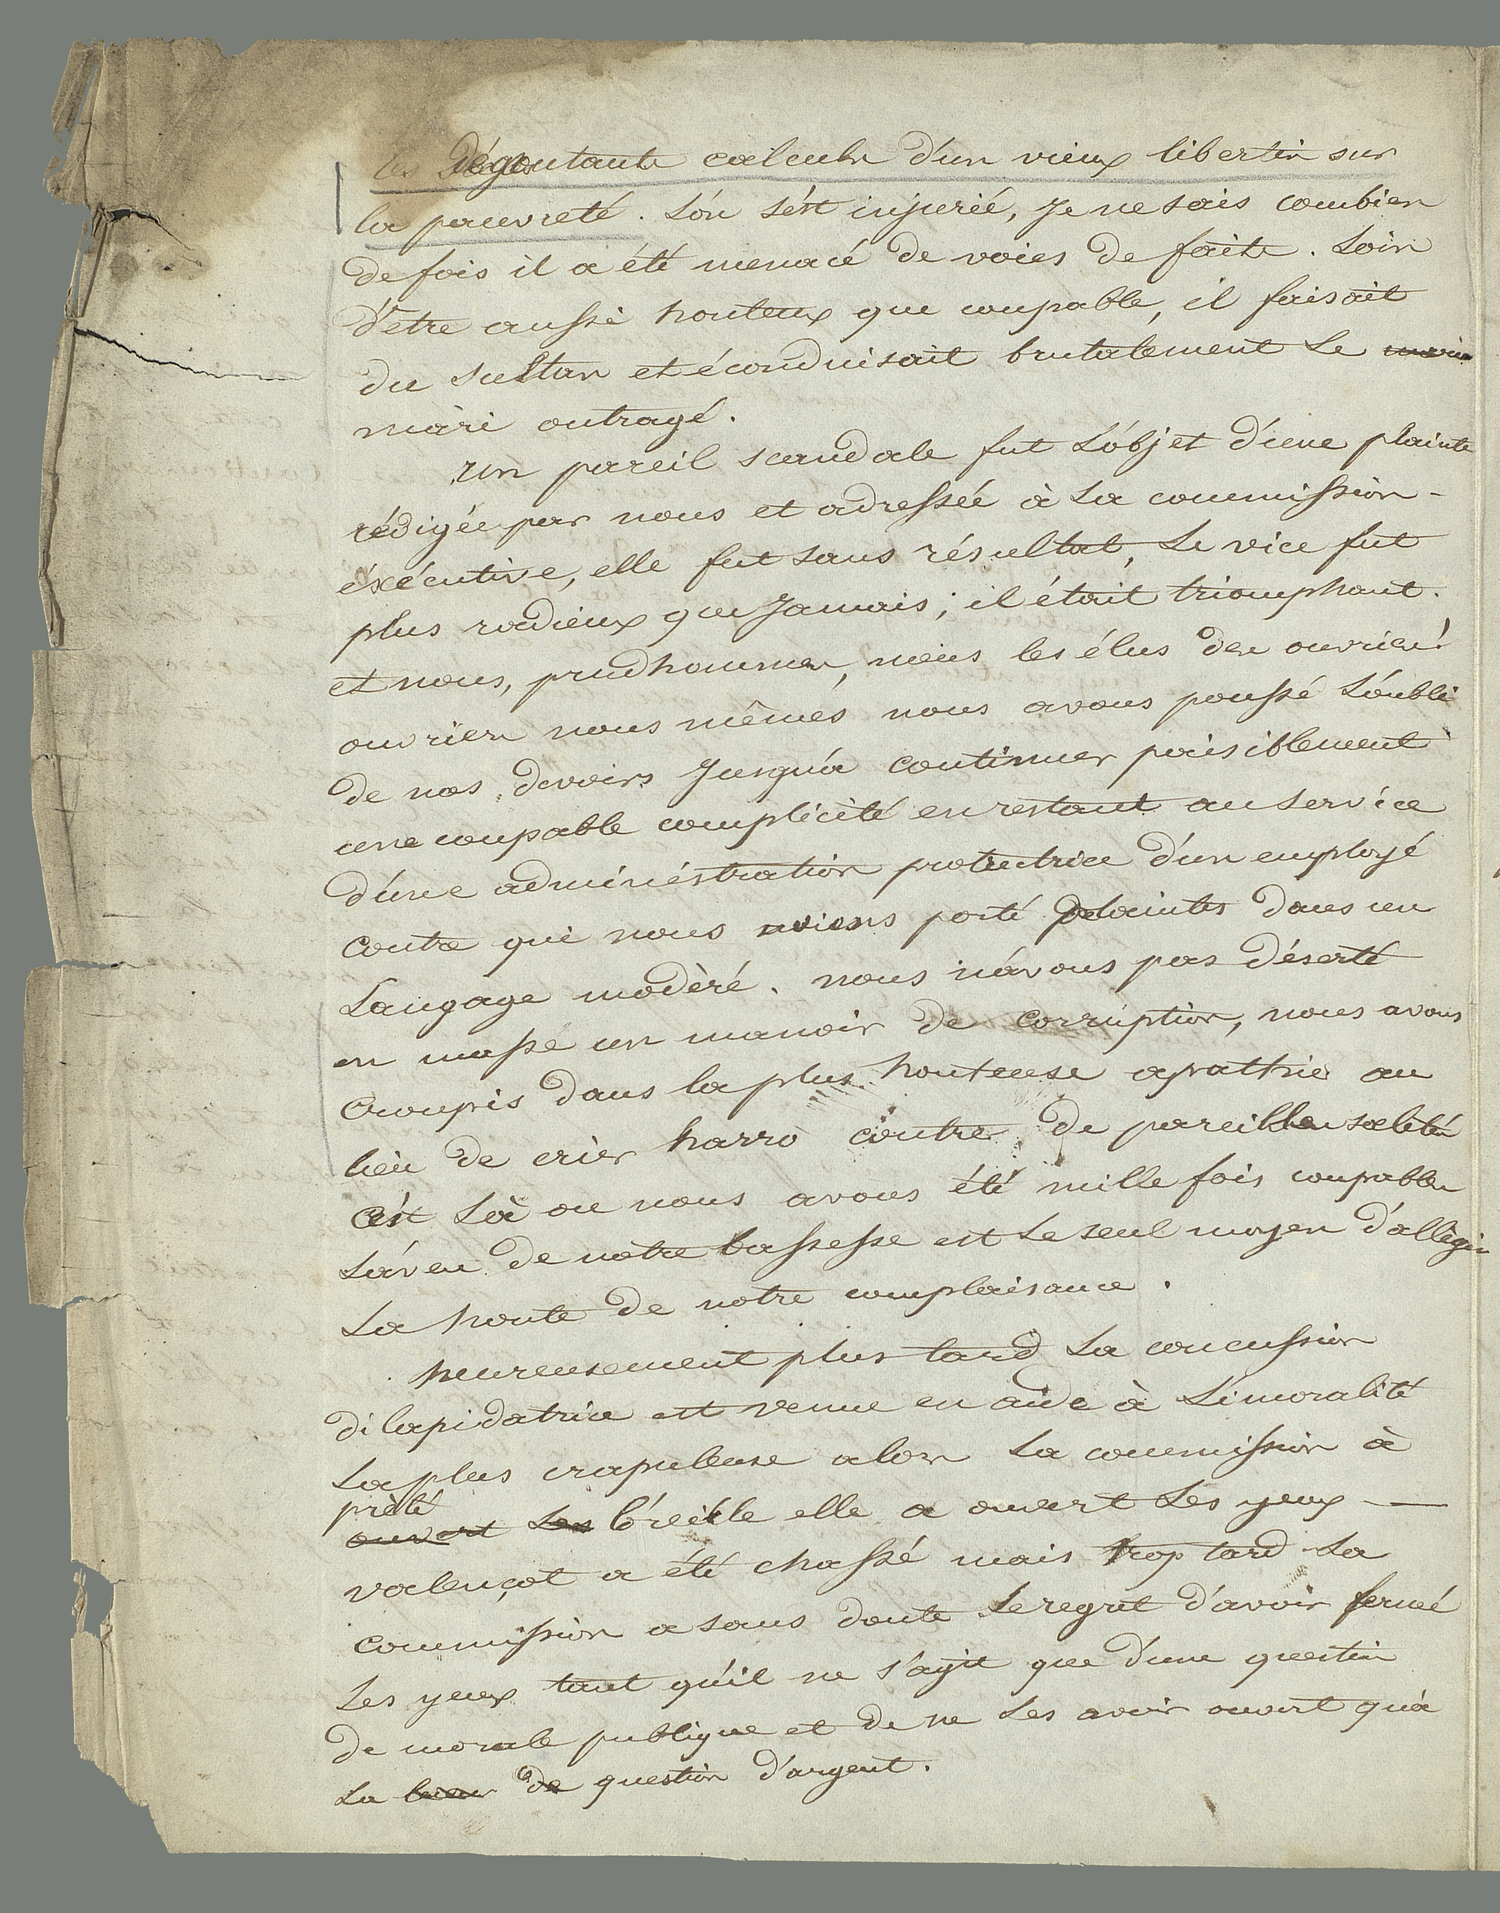 les Dégoutants calculs d'un vieux libertin sur
la pauvreté. L'on s'est injurié, je ne sais combien
de fois il a été menacé de voies de faits. Loin
d'etre aussi honteux que coupable, il faisait
du sultan et éconduisait brutalement Le
mari outragé.
un pareil scandale fut L'objet d'une plainte
rédigée par nous et adressée à La commission-
éxécutive, elle fut sans résultat, Le vice fut
plus radieux que Jamais; il était triomphant.
et nous, prudhommes, nous les élus des ouvriers
ouvriers nous mêmes nous avons poussé L'oubli
de nos devoirs Jusqu'a continuer paisiblement
une coupable complicité en restant au service
d'une administration protectrice d'un employé
contre qui nous avions porté plaintes dans un
Langage modèré. nous n'avons pas déserté
en masse un manoir de corruption, nous avons
croupis dans la plus honteuse apatthie au
lieu de crier harro contre de pareilles saletés
c'est Là ou nous avons été mille fois coupables
L'aveu de notre bassesse est Le seul moyen d'allégir
La honte de notre complaisance.
heureusement plus tard La concussion
dilapidatrice est venue en aide à L'imoralité
La plus crapuleuse alors La commission à
prété
ouvert Les l'oreille elle a ouvert Les yeux —
valençot a été chassé mais trop tard La
commission a sans doute Le regret d'avoir fermé
Les yeux tant qu'il ne s'agit que d'une question
de morale publique et de ne Les avoir ouvert qu'à
La de question d'argent.